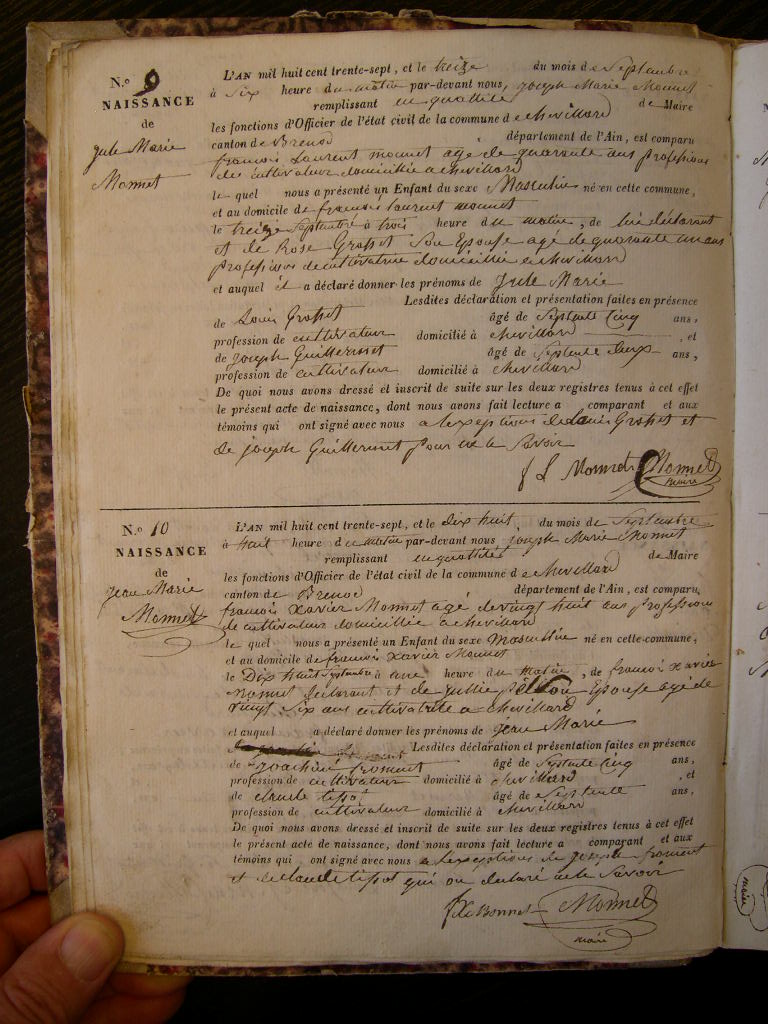 N.o 9
NAISSANCE
de
jule Marie
Monnet
L'AN mil huit cent trente-sept, et le treize du mois de Septembre
à Six heure du matin par-devant nous, joseph Marie Monnet
remplissant en quallité de Maire
les fonctions d'Officier de l'état civil de la commune de chevillard
canton de Brenod département de l'Ain, est comparu
francois Laurent monnet agé de quarante ans profession
de cultivateur domicillié a chevillard
le quel nous a présenté un Enfant du sexe Masculin né en cette commune,
et au domicile de francois laurent monnet
le treize Septembre à trois heure du matin, de lui déclarant
et de Rose Grosset Son Epouse agé de quarante un ans
profession de cultivatrice domicillié a chevillard
et auquel il a déclaré donner les prénoms de Jule Marie
Lesdites déclaration et présentation faites en présence
de Louis Grosset âgé de Septente Cinq ans,
profession de cultivateur domicilié à chevillard , et
de joseph Guillermet âgé de Septente deux ans,
profession de cultivateur domicilié à chevillard
De quoi nous avons dressé et inscrit de suite sur les deux registres tenus à cet effet
le présent acte de naissance, dont nous avons fait lecture a comparant et aux
témoins qui ont signé avec nous a lexeptions de Louis Grosset et
de joseph Guillermet pour ne le Savoir
f L Monnet Monnet
maire
N.o 10
NAISSANCE
de
Jean Marie
Monnet
L'AN mil huit cent trente-sept, et le dix huit, du mois de Septembre
à huit heure du matin par-devant nous joseph Marie Monnet
remplissant en quallité de Maire
les fonctions d'Officier de l'état civil de la commune de chevillard
canton de Brenod département de l'Ain, est comparu,
francois Xavier Monnet agé de vingt huit ans profession
de cultivateur domicillié a chevillard
le quel nous a présenté un Enfant du sexe Masculin né en cette commune,
et au domicile de francois Xavier Monnet
le Dix huit Septembre à une heure du matin, de francois xavier
Monnet declarant et de Son Epouse agé de
vingt Six ans cultivatrice a chevillard
et auquel a déclaré donner les prénoms de jean Marie
Lesdites déclaration et présentation faites en présence
de joachim froment âgé de Septente Cinq ans,
profession de cultivateur domicilié à chevillard , et
de claude tissot âgé de Septente ans,
profession de cultivateur domicilié à chevillard
De quoi nous avons dressé et inscrit de suite sur les deux registres tenus à cet effet
le présent acte de naissance, dont nous avons fait lecture a comparant et aux
témoins qui ont signé avec nous a lexeptions de joseph froment
et de claude tissot qui on declaré ne le Savoir
fX Monnet Monnet
maire